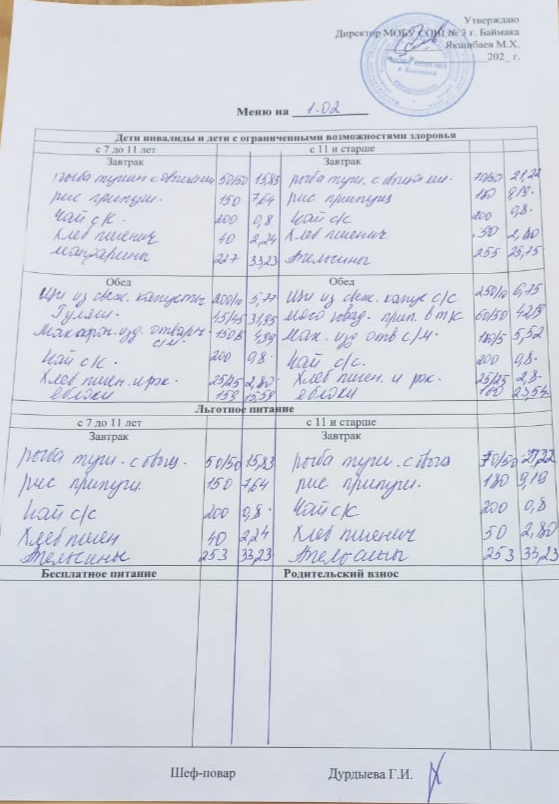 Утверждаю
Директор МОБУ СОШ № 3 г. Баймака
Якшибаев М.Х.
202_ г.
Меню на 1.02
Дети инвалиды и дети с ограниченными возможностями здоровья
с 7 до 11 лет с 11 и старше
Завтрак Завтрак
рыба тушен с овощами 50/50 15,83 рыба туш. с овощами 70/50 21,22
рис припущ. 150 7,64 рис припущ 180 9,19
чай с/с 200 0,8 чай с/с 200 0,8
Хлеб пшенич 40 2,24 Хлеб пшенич 50 2,80
мандарины 227 33,23 Апельсины 255 25,75
Обед Обед
Щи из свеж. капусты 200/10 5,77 Щи из свеж. капус с/с 250/10 6,75
Гуляш 45/45 31,95 мясо 60/50 42,19
Макарон. изд. отварн. с/м 150/5 4,99 Мак. изд отв с/м. 180/5 5,52
Чай с/с. 200 0,8 Чай с/с. 200 0,8
Хлеб пшен. и рж. 25/25 2,80 Хлеб пшен. и рж. 25/25 2,8
яблоки 159 15,58 яблоки 160 23,54
Льготное питание
с 7 до 11 лет с 11 и старше
Завтрак Завтрак
рыба туш. с овощ. 50/50 15,83 рыба туш. с овощ 70/50 21,22
рис припущ. 150 7,64 рис припущ. 180 9,19
Чай с/с 200 0,8 Чай с/с 200 0,8
Хлеб пшен 40 2,24 Хлеб пшенич 50 2,80
Апельсины 253 33,23 Апельсины 253 33,23
Бесплатное питание Родительский взнос
Шеф-повар Дурдыева Г.И.